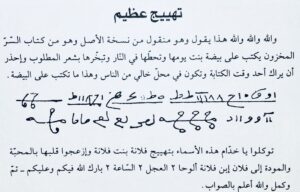 تهييج عظيم
والله والله والله هذا يقول وهو منقول من نسخة الأصل وهو من كتاب السرّ
المخزون يكتب على بيضة بنت يومها وتحطّها في النّار وتبخّرها بشعر المطلوب وإحذر
أن يراك أحد وقت الكتابة وتكون في محلّ خالي من الناس وهذا ما تكتب على البيضة.
توكلوا يا خدّام هذه الأسماء بتهييج فلانة بنت فلانة وإزعجوا قلبها بالمحبّة
والمودة إلى فلان إبن فلانة ألوحا ٢ العجل ٢ السّاعة ٢ بارك الله فيكم وعليكم - تمّ
وكمل والله أعلم بالصواب.